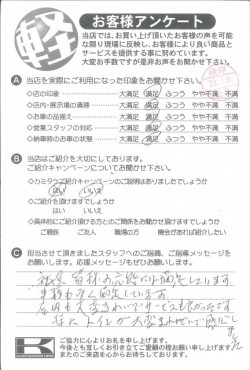 軽
お客様アンケート
当店では、お買い上げ頂いたお客様の声を可能
な限り現場に反映し、お客様により良い商品と
サービスを提供する事に努めています。
大変お手数ですが是非お声をお聞かせ下さい。
A 当店を実際にご利用になった印象をお聞かせ下さい。
◇店の印象 大満足 満足 ふつう やや不満 不満
◇店内・展示場の清掃 大満足 満足 ふつう やや不満 不満
◇お車の品揃え 大満足 満足 ふつう やや不満 不満
◇営業スタッフの対応 大満足 満足 ふつう やや不満 不満
◇納車時のお車の状態 大満足 満足 ふつう やや不満 不満
B 当店はご紹介を大切にしております。
ご紹介キャンペーンについてお聞かせ下さい。
◇カミタケご紹介キャンペーンのご説明はありましたでしょうか
はい いいえ
◇ご紹介を頂けますでしょうか
はい いいえ
◇具体的にご紹介頂ける方とのご関係をお聞かせ頂けますでしょうか
ご親族 ご友人 職場の方 機会があれば紹介したい
C 担当させて頂きましたスタッフへのご指摘、ご指導メッセージを
お願いします。応援メッセージもぜひお願いします。
社員皆様の応対には満足しています。
K
ご協力に心よりお礼を申し上げます。
今後とも宜しくお引き立てご愛顧の程お願い申し上げます。
またのご来店を心からお待ちしております。